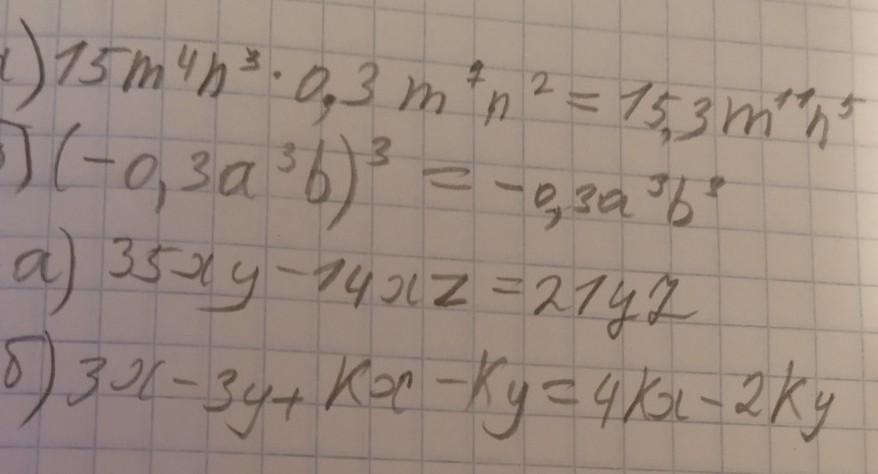 а) 15m⁴n³ · 0,3m⁷n² = 15,3m¹¹n⁵
б) (-0,3a³b)³ = -0,3a³b³
а) 35xy - 14xz = 21yz
б) 3x - 3y + kx - ky = 4kx - 2ky